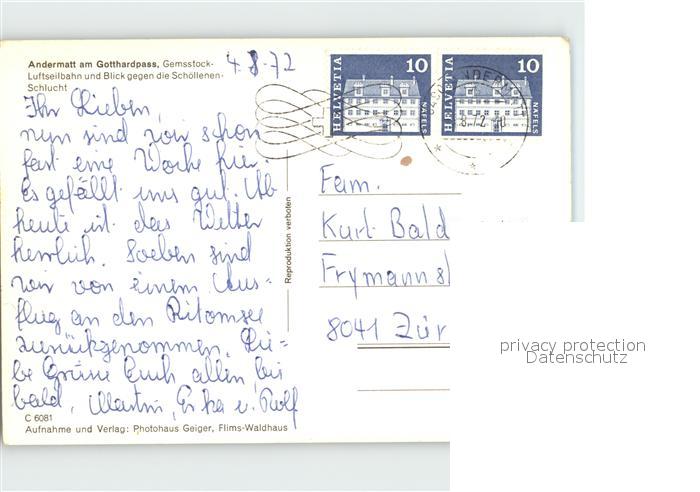 Andermatt am Gotthardpass, Gemsstock-
Luftseilbahn und Blick gegen die Schöllenen-
Schlucht
4. 8. 72
HELVETIA 10 NÄFELS
HELVETIA 10 NÄFELS
8.72-10
Ihr Lieben,
nun sind wir schon
fast eine Woche hier.
Es gefällt uns gut. Ab
heute ist das Wetter
herrlich. Soeben sind
wir von einem Aus-
flug an den Ritomsee
zurückgenommen. Lie=
be Grüsse Euch allen, bis
bald, Martin, Erka u. Rolf
Reproduktion verboten
Fam.
Kurt Bald
Frymann
8041 Zür
C 6081
Aufnahme und Verlag: Photohaus Geiger, Flims-Waldhaus
privacy protection
Datenschutz